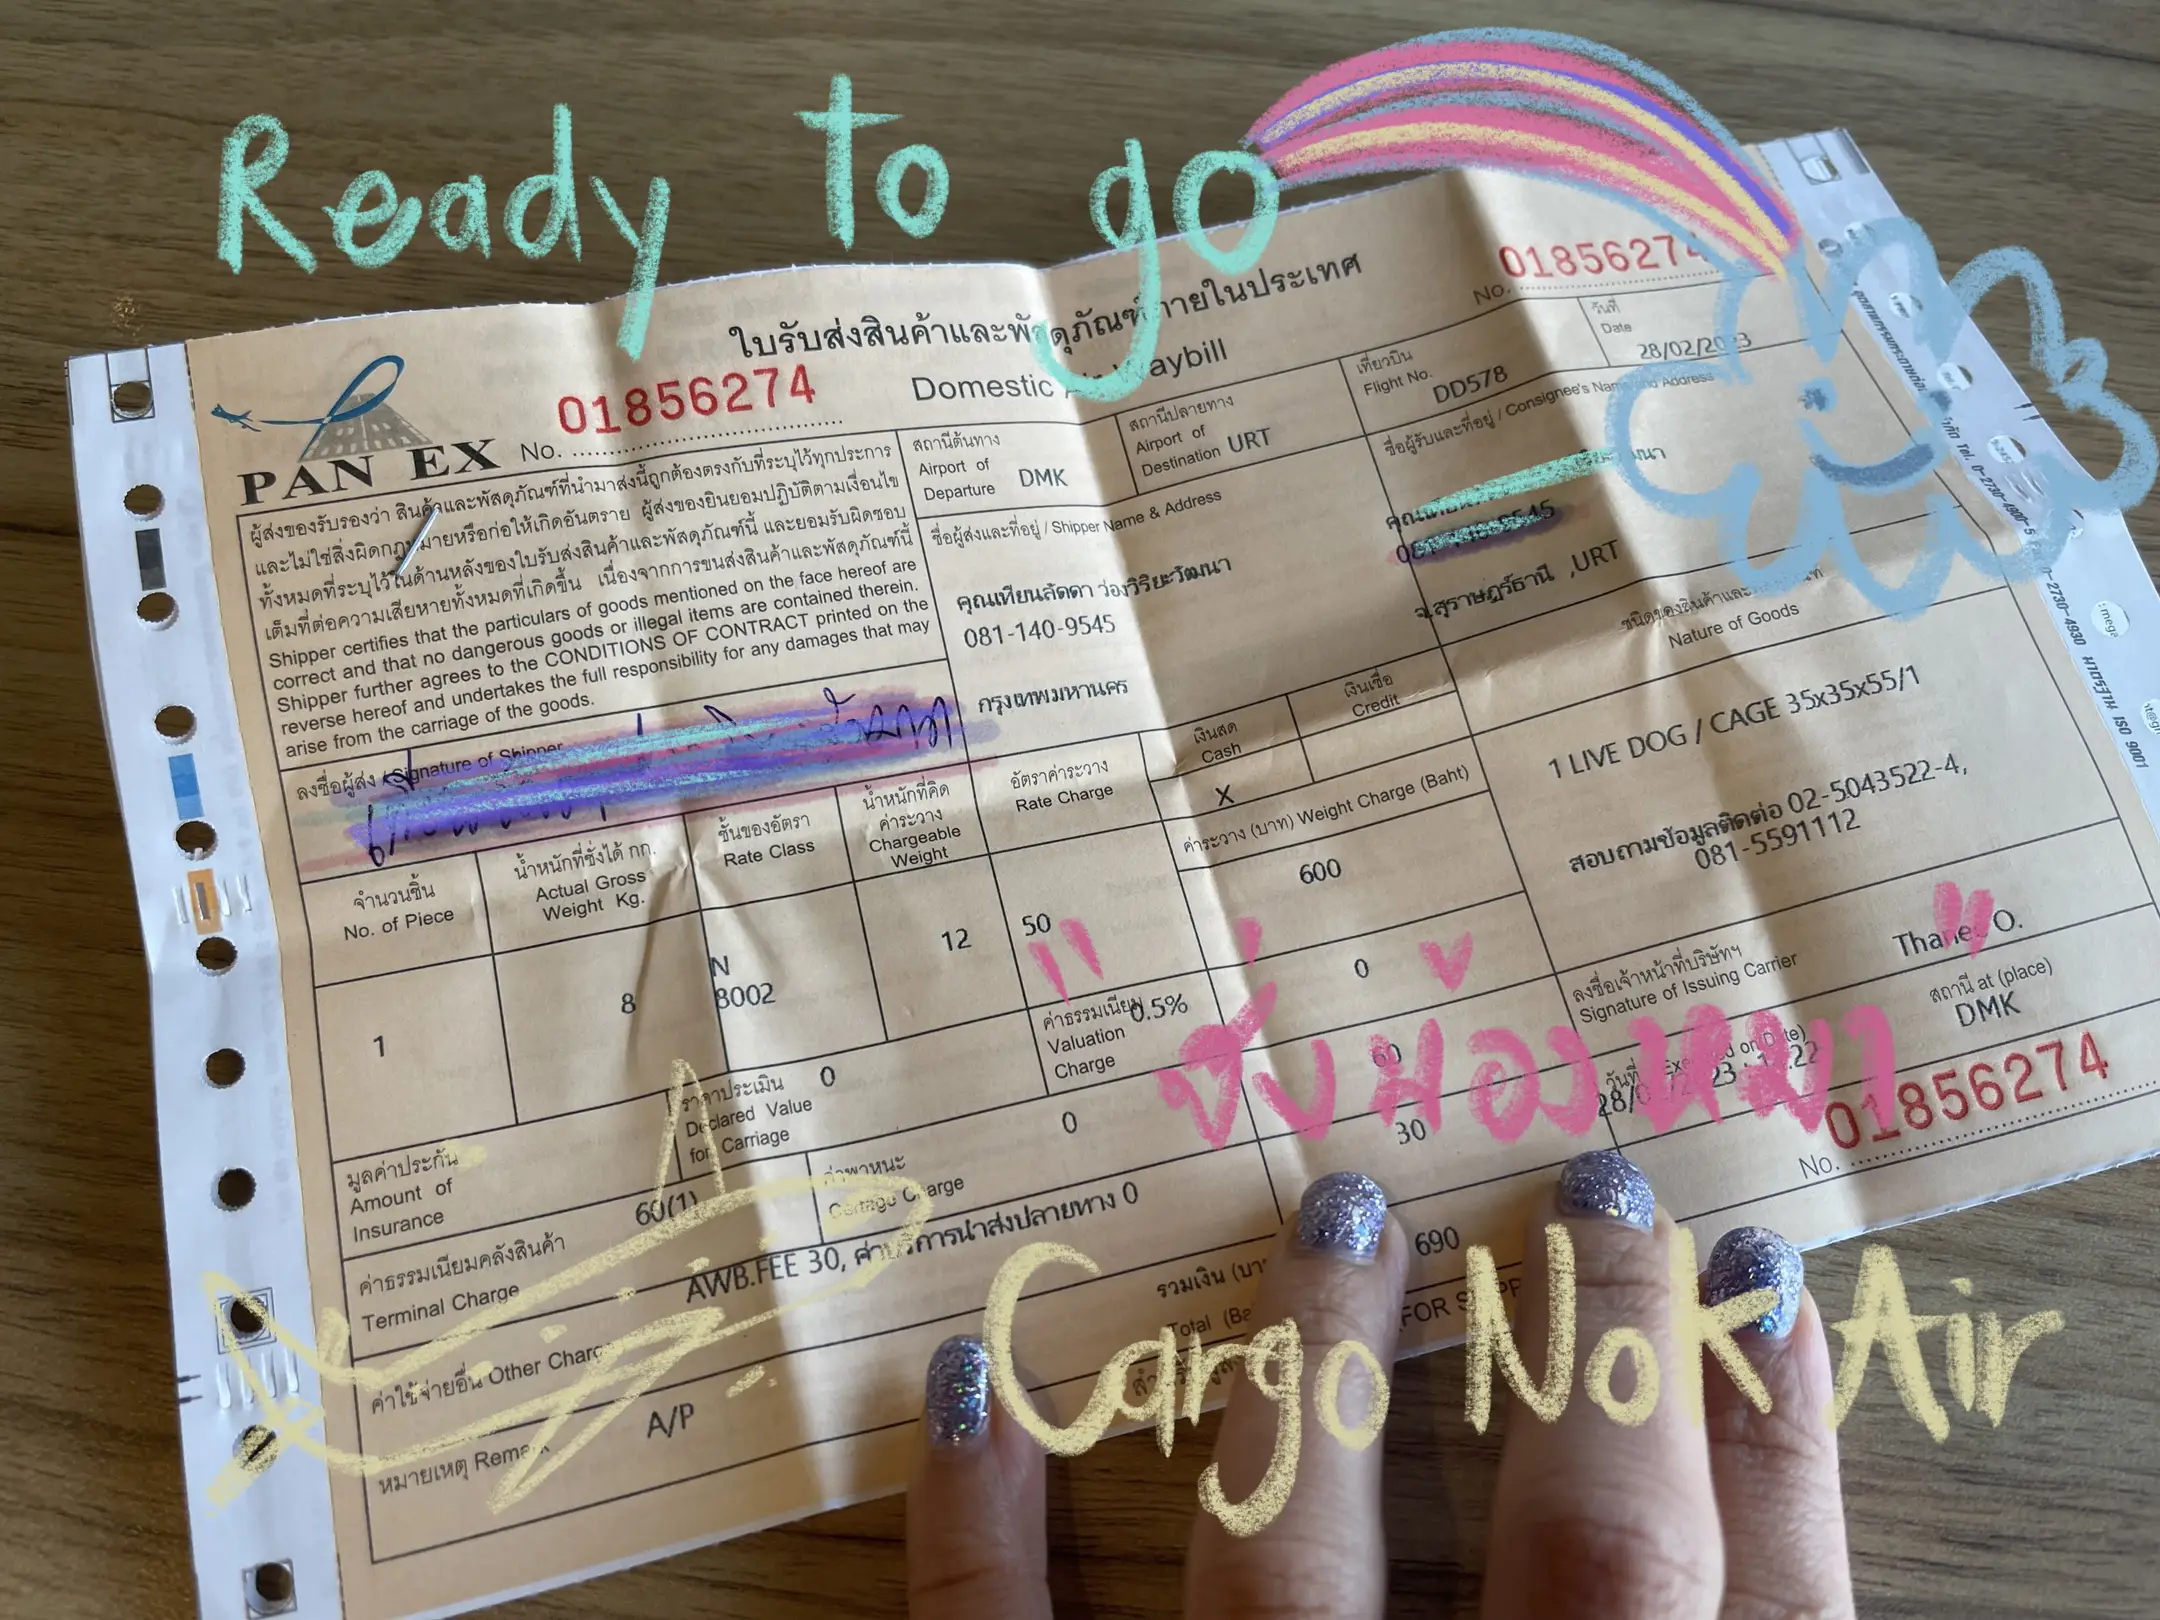 Ready to go
ใบรับส่งสินค้าและพัสดุภัณฑ์ภายในประเทศ
Domestic Air Waybill
No. 01856274
No. 01856274
วันที่
Date
28/02/2023
PAN EX
ผู้ส่งของรับรองว่า สินค้าและพัสดุภัณฑ์ที่นำมาส่งนี้ถูกต้องตรงกับที่ระบุไว้ทุกประการ
และไม่ใช่สิ่งผิดกฎหมายหรือก่อให้เกิดอันตราย ผู้ส่งของยินยอมปฏิบัติตามเงื่อนไข
ทั้งหมดที่ระบุไว้ในด้านหลังของใบรับส่งสินค้าและพัสดุภัณฑ์นี้ และยอมรับผิดชอบ
เต็มที่ต่อความเสียหายทั้งหมดที่เกิดขึ้น เนื่องจากการขนส่งสินค้าและพัสดุภัณฑ์นี้
Shipper certifies that the particulars of goods mentioned on the face hereof are
correct and that no dangerous goods or illegal items are contained therein.
Shipper further agrees to the CONDITIONS OF CONTRACT printed on the
reverse hereof and undertakes the full responsibility for any damages that may
arise from the carriage of the goods.
ลงชื่อผู้ส่ง / Signature of Shipper
สถานีต้นทาง
Airport of
Departure DMK
สถานีปลายทาง
Airport of
Destination URT
เที่ยวบิน
Flight No. DD578
ชื่อผู้ส่งและที่อยู่ / Shipper Name & Address
คุณเทียนลัดดา ว่องวิริยะวัฒนา
081-140-9545
กรุงเทพมหานคร
ชื่อผู้รับและที่อยู่ / Consignee's Name and Address
จ.สุราษฎร์ธานี ,URT
เงินสด
Cash
X
เงินเชื่อ
Credit
ชนิดของสินค้าและ
Nature of Goods
1 LIVE DOG / CAGE 35x35x55/1
สอบถามข้อมูลติดต่อ 02-5043522-4,
081-5591112
จำนวนชิ้น
No. of Piece
1
น้ำหนักที่ชั่งได้ กก.
Actual Gross
Weight Kg.
8
ชั้นของอัตรา
Rate Class
N
8002
น้ำหนักที่คิด
ค่าระวาง
Chargeable
Weight
12
อัตราค่าระวาง
Rate Charge
50
ค่าระวาง (บาท) Weight Charge (Baht)
600
ค่าธรรมเนียม 0.5%
Valuation
Charge
0
ราคาประเมิน
Declared Value
for Carriage
0
มูลค่าประกัน
Amount of
Insurance
ค่าพาหนะ
Cartage Charge
0
60
ค่าธรรมเนียมคลังสินค้า
Terminal Charge
60(1)
30
ค่าใช้จ่ายอื่น Other Charge
AWB.FEE 30, ค่าบริการนำส่งปลายทาง 0
รวมเงิน
Total
690
หมายเหตุ Remark
A/P
ลงชื่อเจ้าหน้าที่บริษัทฯ
Signature of Issuing Carrier
Thanet O.
สถานี at (place)
DMK
No. 01856274
"ชั่งน้องหมา"
Cargo Nok Air